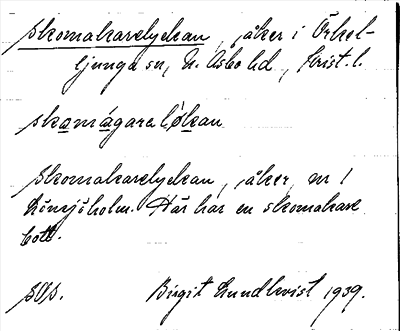 Skomakarelyckan, åker i Örkel-
ljunga sn, N. Åsbo hd, Krist. l.
skomágarelø̀kan
Skomakarelyckan, åker, nr 1
Lönsjöholm. Här har en skomakare
bott.
sOs. Birgit Lundkvist 1939.